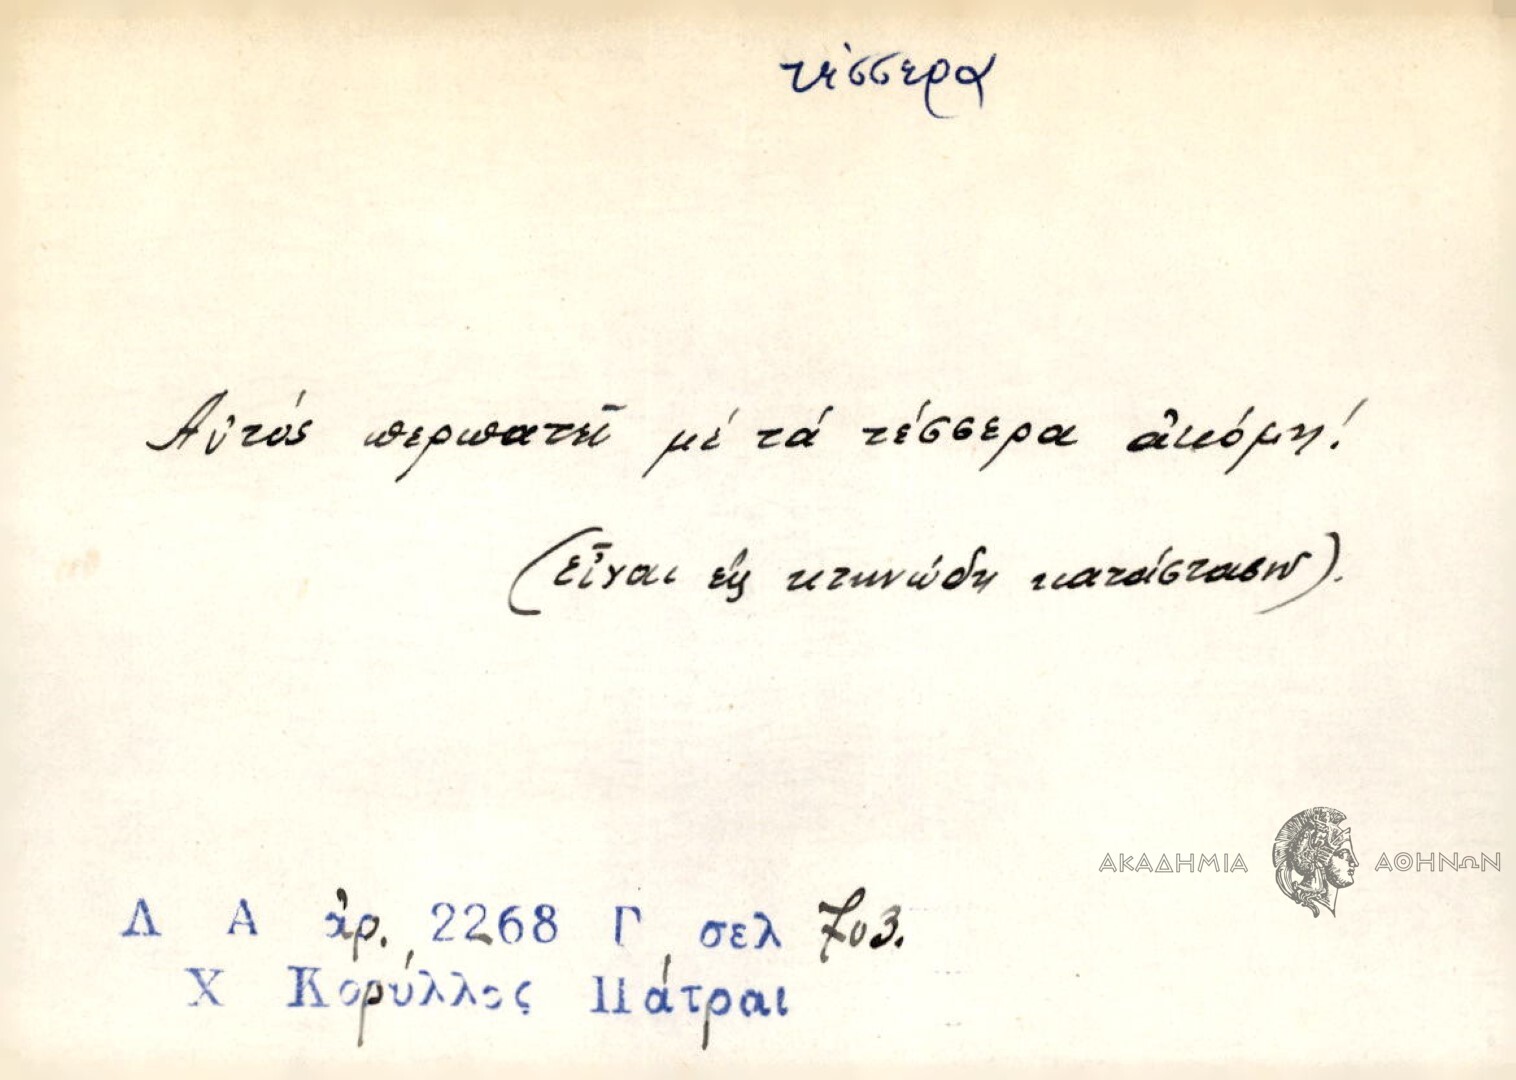 τέσσερα
Αὐτός περπατεῖ μέ τά τέσσερα ἀκόμη!
(εἶναι εἰς κτηνώδη κατάστασιν).
ΑΚΑΔΗΜΙΑ ΑΘΗΝΩΝ
Λ Α ἀρ. 2268 Γ σελ 703.
Χ Κορύλλος Πάτραι